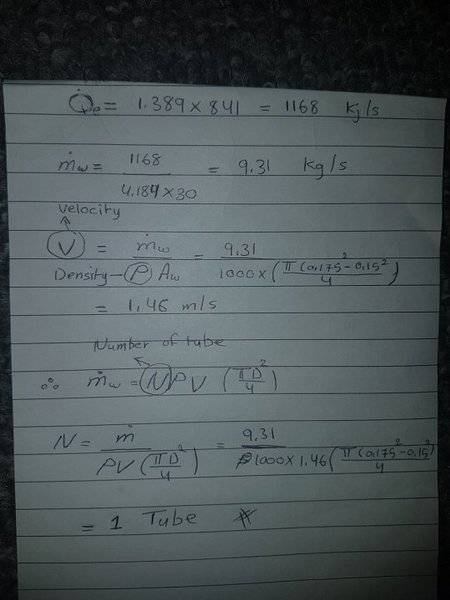 Q̇e = 1.389 × 841 = 1168 Kj/s
ṁw = 1168 / 4.184 × 30 = 9.31 Kg/s
Velocity
V = ṁw / ρ Aw = 9.31 / 1000 × (π(0.175² - 0.15²) / 4)
Density
= 1.46 m/s
Number of tube
∴ ṁw = N ρ V (πD² / 4)
N = ṁ / ρV (πD² / 4) = 9.31 / 1000 × 1.46 (π(0.175² - 0.15²) / 4)
= 1 Tube #